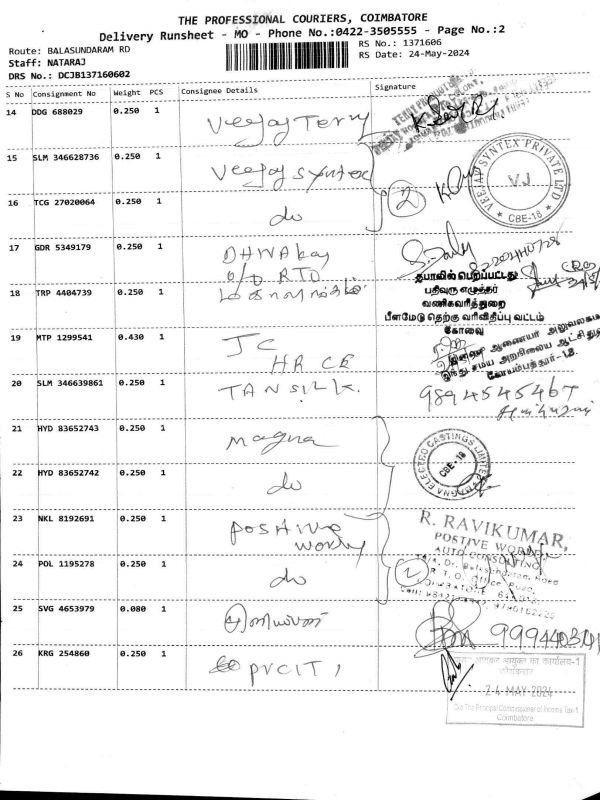 THE PROFESSIONAL COURIERS, COIMBATORE
Delivery Runsheet - MO - Phone No.:0422-3505555 - Page No.:2
Route: BALASUNDARAM RD
Staff: NATARAJ
DRS No.: DCJB137160602
RS No.: 1371606
RS Date: 24-May-2024
S No Consignment No Weight PCS Consignee Details Signature
14 DDG 688029 0.250 1 Veejay Terry
15 SLM 346628736 0.250 1 Veejay Syntex
2
VEEJAY SYNTEX PRIVATE LTD
VJ
CBE-18
16 TCG 27020064 0.250 1 do
17 GDR 5349179 0.250 1 DHWAkay
O/O RTO
18 TRP 4404739 0.250 1
தபாலில் பெறப்பட்டது
பதிவுரு எழுத்தர்
வணிகவரித்துறை
பீளமேடு தெற்கு வரிவிதிப்பு வட்டம்
கோவை
19 MTP 1299541 0.430 1 JC
HR CE
ஆணையர் அலுவலகம்
இந்து சமய அறநிலைய ஆட்சித்துறை
கோயம்புத்தூர்-18.
20 SLM 346639861 0.250 1 TANSILK. 9894545467
21 HYD 83652743 0.250 1 Magna
MAGNA ELECTRO CASTINGS LIMITED
CBE-18
22 HYD 83652742 0.250 1 do
23 NKL 8192691 0.250 1 Positive
World
R. RAVIKUMAR,
POSTIVE WORLD,
AUTO CONSULTING
R. T. O. Office Road,
24 POL 1195278 0.250 1 do
2
25 SVG 4653979 0.080 1
26 KRG 254860 0.250 1 PVCIT,
आयकर आयुक्त का कार्यालय-1
24 MAY 2024
O/o The Principal Commissioner of Income Tax-1
Coimbatore